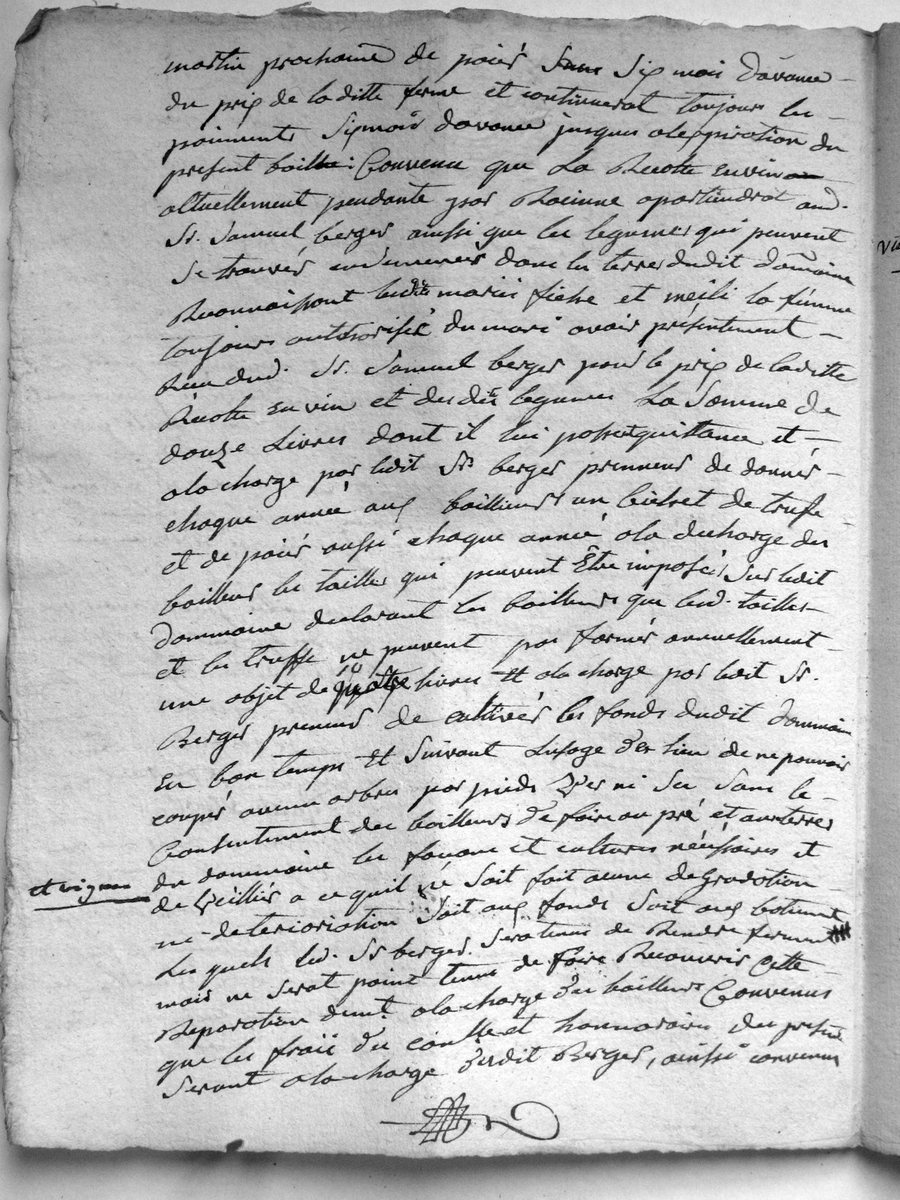 martin prochaine de paiér Sans Six mois d'avance
du prix de laditte ferme et continuerat toujours les
paiments Sixmois d'avance jusques alexpiration du
present bail : Convenu que La Recolte en vin
actuellement pendante par Racinne apartiendrat aud.
Sr. Samuel berger aussi que les legumes qui peuvent
Se trouvér dans les terres dudit dommaine
Reconnaissant lesdits mariés fishe et meili la fémme
toujours authorisée du mari avoir présentement
Recu dud. Sr. Samuel berger pour le prix de laditte
Récolte en vin et desdits legumes La Somme de
douze Livres dont il lui passe quittance et
ala charge par ledit Sr berger prenneur de donnér
chaque année aux bailleurs un de trufe
et de paiér aussi chaque année ala decharge des
bailleurs les tailles qui peuvent Être imposés Sur ledit
dommaine declarant les bailleurs que lesd. tailles
et les truffe ne peuvent pas formér annuellement
une objet de livres Et ala charge par ledit Sr.
Berger preneur de cultivér les fonds dudit dommaine
en bon temps Et Suivant Lusage des lieu de ne pouvoir
coupér aucun arbres par pieds Vers ni Sec Sans le
Consentement des bailleurs de faire au pré et aux terres
et vignes
du dommaine les façons et cultures nécéssaires et
de Veilliér a ce quil ne Soit fait aucune degradation
ni deterioriation Soit aux fonds Soit aux batiments
Les quels led. Sr berger Sera tenus de Rendre fermant
mais ne Serat point tenus de faire Recouvrir Cette
Reparation étant ala charge des bailleurs Convenus
que les fraix du contlle et honnoraires du present
Seront ala charge dudit Berger, aussi convenu